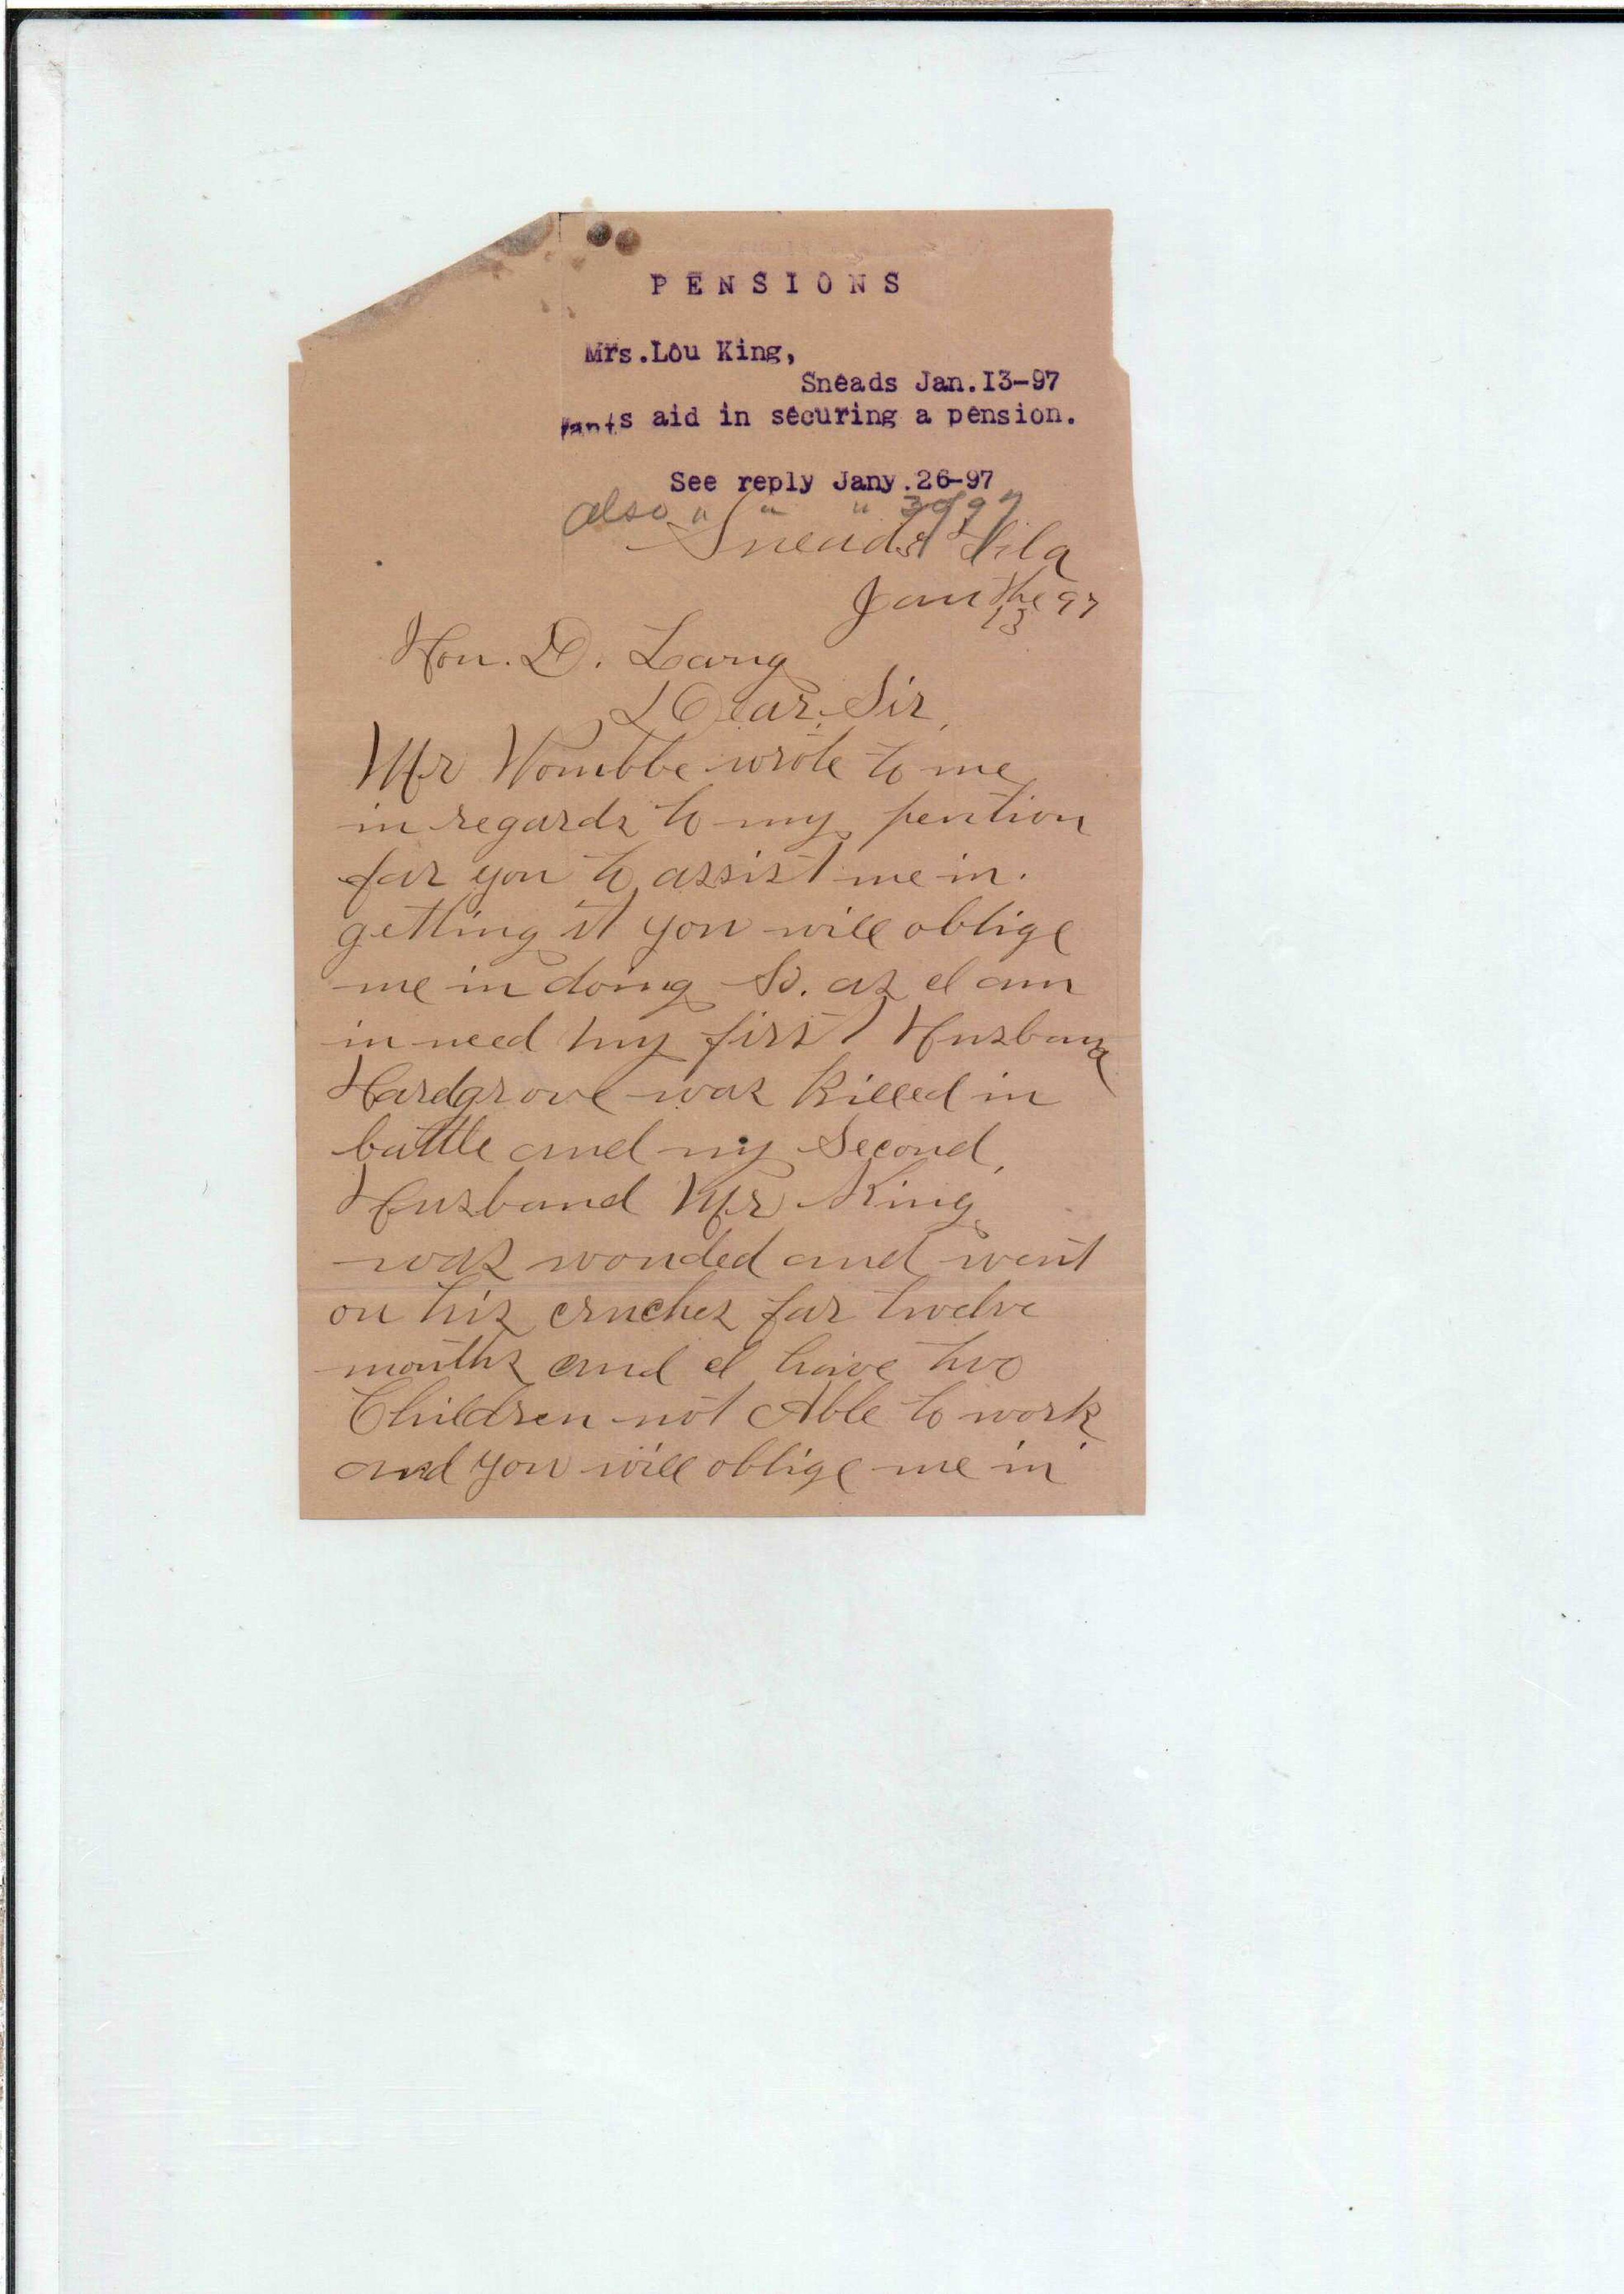 PENSIONS
Mrs.Lou King,
Sneads Jan.I3-97
Wants aid in securing a pension.
See reply Jany.26-97
also " " " 30/97
Sneads Fla
Jan the 97
13
Hon. D. Lang
Dear. Sir,
Mr Wombbe wrote to me
in regards to my pention
for you to assist me in.
getting it you will oblige
me in doing So. as I am
in need my first Husband
Hardgrove was killed in
battle and my Second,
Husband Mr King
was wonded and went
on his cruches for twelve
months and I have two
Children not Able to work
and you will oblige me in